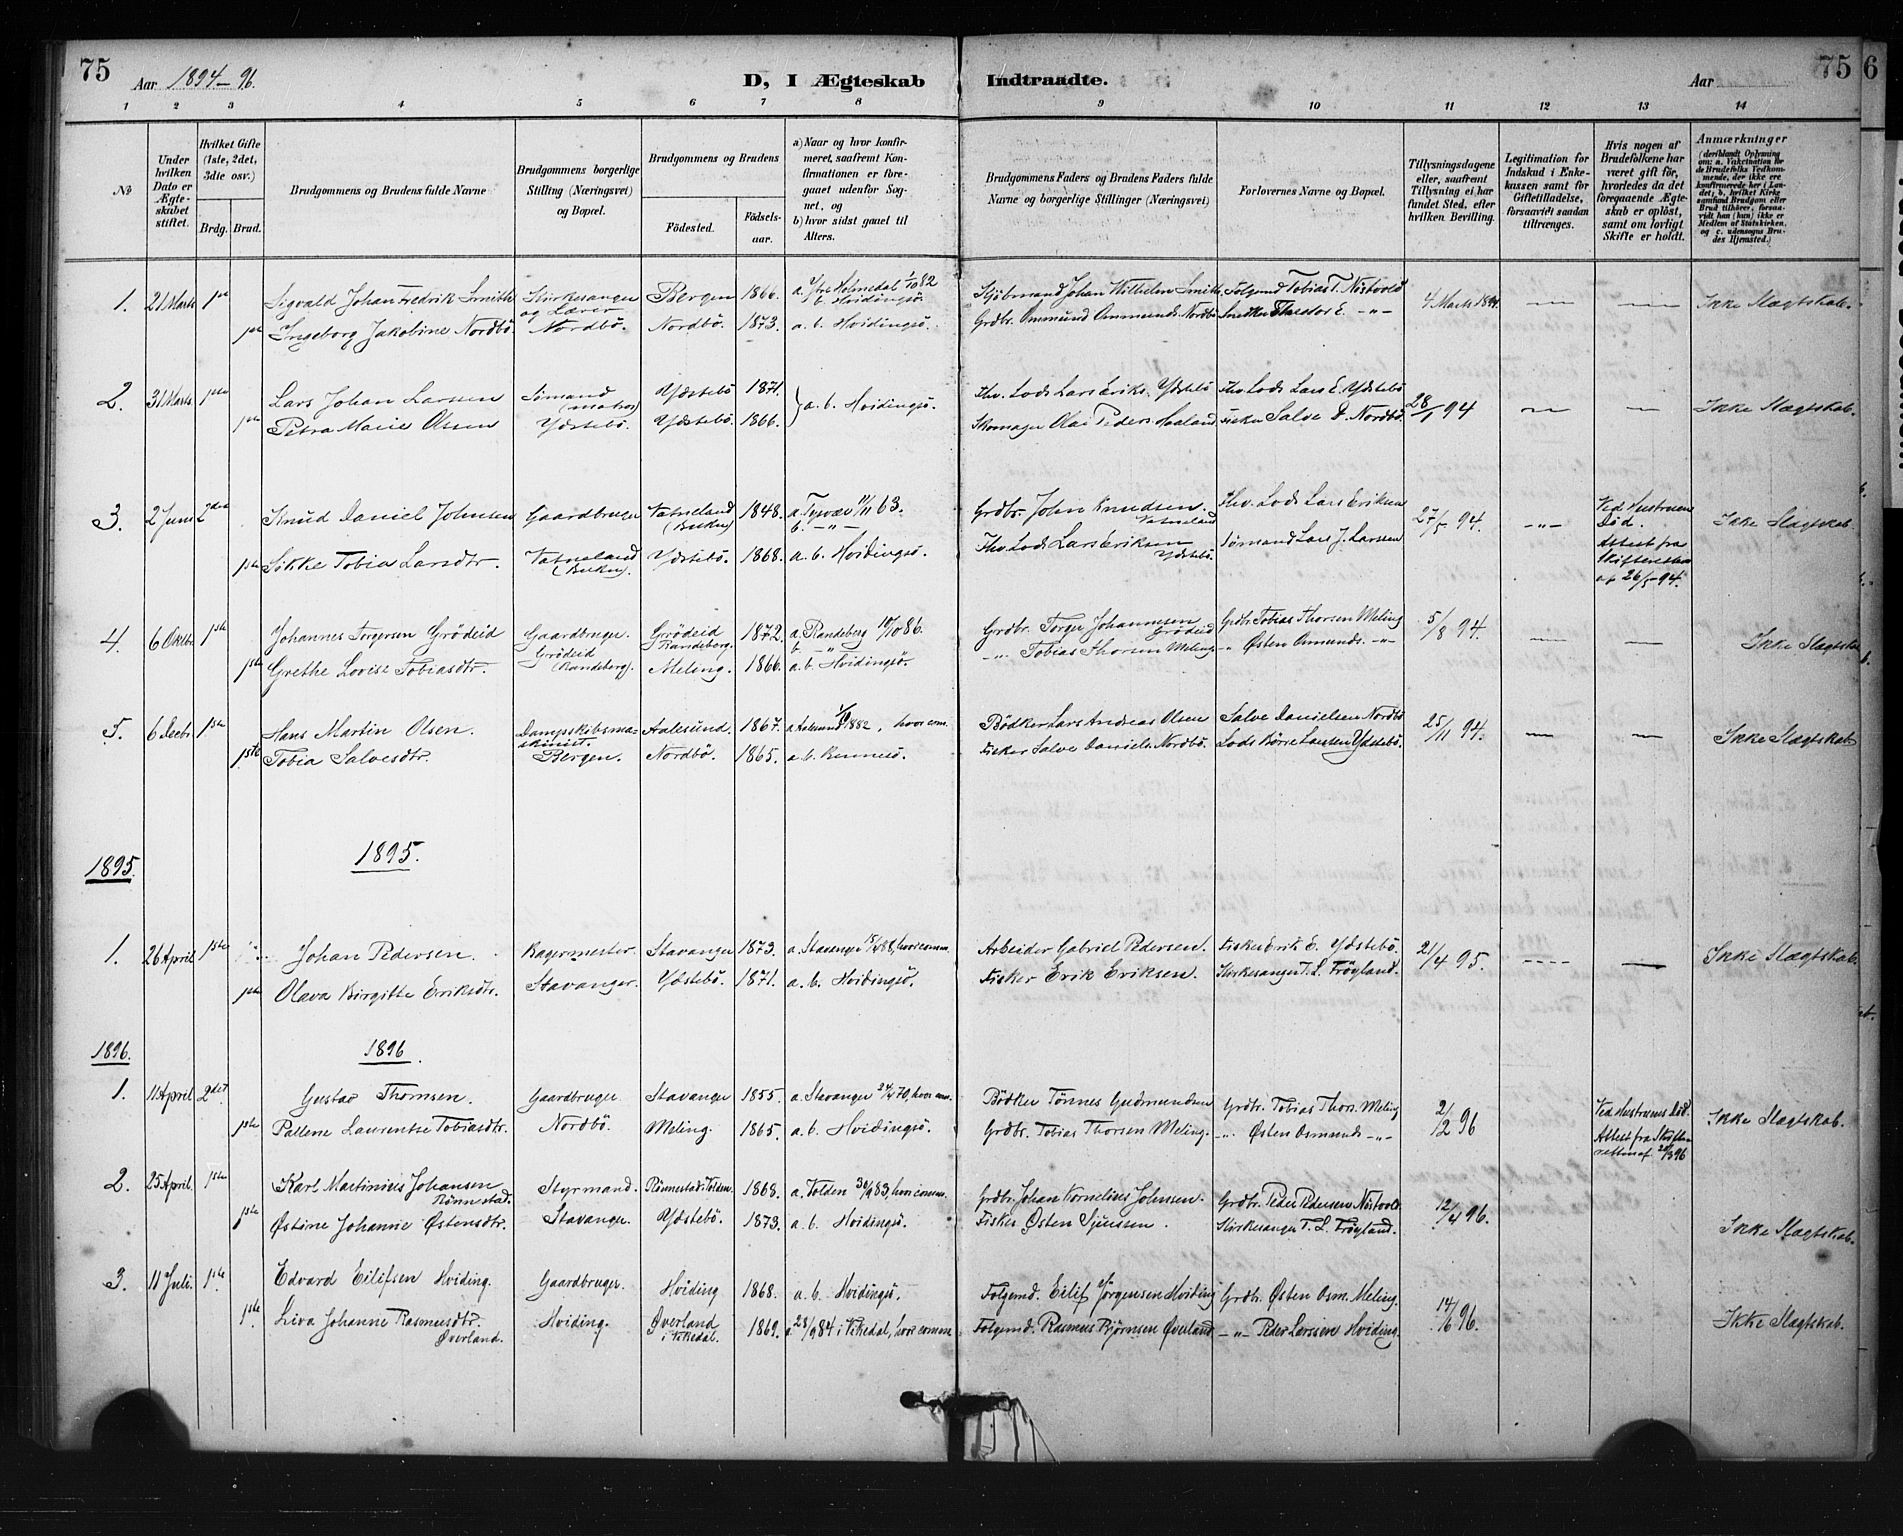 75
Aar 1894-96.
D, I Ægteskab Indtraadte.
Aar
75
6
1 2 3 4 5 6 7 8 9 10 11 12 13 14
No
Under hvilken Dato er Ægteskabet stiftet.
Hvilket Gifte (1ste, 2det, 3die osv.)
Brdg. Brud.
Brudgommens og Brudens fulde Navne
Brudgommens borgerlige Stilling (Næringsvei) og Bopæl.
Brudgommens og Brudens
Fødested.
Fødselsaar.
a) Naar og hvor konfirmeret, saafremt Konfirmationen er foregaaet udenfor Sognet, og
b) hvor sidst gaaet til Alters.
Brudgommens Faders og Brudens Faders fulde Navne og borgerlige Stillinger (Næringsvei)
Forlovernes Navne og Bopæl.
Tillysningsdagene eller, saafremt Tillysning ei har fundet Sted, efter hvilken Bevilling.
Legitimation for Indskud i Enkekassen samt for Giftetilladelse, forsaavidt saadan tiltrænges.
Hvis nogen af Brudefolkene har været gift før, hvorledes da det foregaaende Ægteskab er opløst, samt om lovligt Skifte er holdt.
Anmærkninger
(deriblandt Oplysning om: a. Vakcination for de Brudefolks Vedkommende, der ikke ere konfirmerede her i Landet; b. hvilket Kirkesamfund Brudgom eller Brud tilhører, forsaavidt han (hun) ikke er Medlem af Statskirken, og c. udensogns Brudes Hjemsted.)
1. 21 Marts 1ste Sigvald Johan Fredrik Smith Kirkesanger og Lærer Bergen 1866. Holmedal 1/10 82 b. Hvidingsö. Johan Wilhelm Smith Tobias T. Nistvold 4 Marts 1894. Ikke Slægtskab.
1ste Ingeborg Jakobine Nordbö Nordbö. Nordbö. 1873. a. b. Hvidingsö. Grdbr. Ommund Ommunds. Nordbö
2. 31 Marts 1ste Lars Johan Larsen Sömand (matros) Ydstebö 1871. a. b. Hvidingsö. Fhv. Lods Lars Eriks. Ydstebö Fhv. Lods Lars E. Ydstebö 28/1 94 Ikke Slægtskab.
1ste Petra Marie Olsen Ydstebö. Ydstebö. 1866. Skomager Olai Peders. Haaland Fisker Salve D. Nordbö.
3. 2 Juni 2det Knud Daniel Johnsen Gaardbruger Vatneland (Bukn) 1848. a. Tysvær 11/11 63. b. -"- Grdbr. John Knudsen Vatneland Fhv. Lods Lars Eriksen 27/5 94. Ved Hustruens Död. Attest fra Skifteretten af 26/5 94. Ikke Slægtskab.
1ste Sikke Tobia Larsdtr. Vatneland (Bukn). Ydstebö. 1868. a. b. Hvidingsö. Fhv. Lods Lars Eriksen Ydstebö. Sömand Lars J. Larssen
4. 6 Oktbr. 1ste Johannes Torgersen Grödeid Gaardbruger. Grödeid Randeberg. 1872. a. Randeberg 10/10 86. b. -"- Grdbr. Torger Johannesen Grödeid Grdbr. Tobias Thorsen Meling 5/8 94. Ikke Slægtskab
1ste Grethe Lovise Tobiasdtr. Grödeid (Randeberg). Meling. 1866. a. b. Hvidingsö. -"- Tobias Thorsen Meling -"- Östen Osmunds. -"-
5. 6 Decbr. 1ste Hans Martin Olsen. Dampskibsmaskinist. Aalesund. 1867. a. Aalesund 1882, hvor com. Bödker Lars Andreas Olsen Salve Danielsen Nordbö 25/11 94. Ikke Slægtskab
1ste Tobia Salvesdtr. Bergen. Nordbö. 1865. a. b. Rennesö. Fisker Salve Daniels. Nordbö. Lods Börre Larssen Ydstebö.
1895. 1895.
1. 26 April 1ste Johan Pedersen. Bagermester. Stavanger 1873. a. Stavanger 15/4 88, hvor comm. Arbeider Gabriel Pedersen. Fisker Erik E. Ydstebö. 21/4 95. Ikke Slægtskab.
1ste Olava Birgitte Eriksdtr. Stavanger. Ydstebö. 1871. a. b. Hvidingsö. Fisker Erik Eriksen. Kirkesanger T. L. Fröyland.
1896. 1896.
1. 11 April 2det Gustav Thomsen. Gaardbruger Stavanger 1855. a. Stavanger 24/4 70, hvor com. Bödker Tönnes Gudmundsen Grdbr. Tobias Thors. Meling 2/12 96 Ved Hustruens Död. Attest fra Skifteretten af 28/3 96 Ikke Slægtskab.
1ste Pallene Laurentse Tobiasdtr. Nordbö. Meling. 1865. a. b. Hvidingsö. Grdbr. Tobias Thorsen Meling. -"- Östen Osmunds -"-
2. 25 April. 1ste Karl Martinius Johansen Rönnestad. Styrmand. Rönnestad i Tolden. 1868. a. Tolden 30/9 83, hvor comm. Grdbr. Johan Kornelius Johnsen. Grdbr. Peder Pedersen Nistvold 12/4 96. Ikke Slægtskab.
1ste Östine Johanne Östensdtr. Stavanger. Ydstebö. 1873. a. b. Hvidingsö. Fisker Östen Sjursen. Kirkesanger T. L. Fröyland.
3. 11 Juli. 1ste Edvard Eilifsen Hviding. Gaardbruger. Hviding 1868. a. b. Hvidingsö. Folgemd. Eilif Jörgensen Hviding Grdbr. Östen Osm. Meling. 14/6 96. Ikke Slægtskab.
1ste Liva Johanne Rasmusdtr. Överland. Hviding. Överland i Vikedal. 1869. a. 28/9 84 i Vikedal, hvor comm. Folgemd. Rasmus Björnsen Överland. -"- Peder Larssen Hviding.